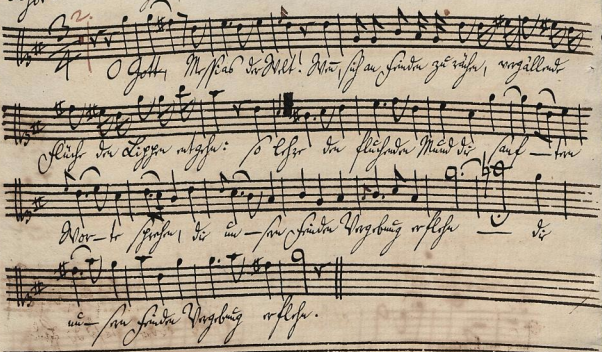 O Gott, Messias der Welt! Wen, sich an Feinden zu rächen, vergällende
Flüche den Lippen entgehn: so lehre den fluchenden Mund die sanf – ten
Wor – te sprechen, die un – sern Feinden Vergebung erflehn — die
un – sern Feinden Vergebung erflehn.